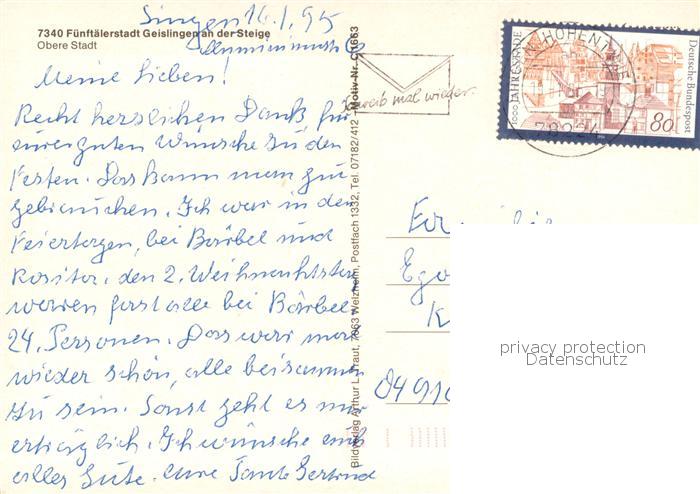 Singen 16.1.95
7340 Fünftälerstadt Geislingen an der Steige
Obere Stadt
Meine Lieben!
Recht herzlichen Dank für
eure guten Wünsche zu den
Festen. Das kann man gut
gebrauchen. Ich war in den
Feiertagen, bei Bärbel und
Rosita, den 2. Weihnachtstag
waren fast alle bei Bärbel
24 Personen. Das war mal
wieder schön, alle beisammen
zu sein. Sonst geht es mir
erträglich. Ich wünsche euch
alles Gute. Eure Tante Gertrud
Bildverlag Arthur L. Traut, 7063 Welzheim, Postfach 1332, Tel. 07182/412 - Motiv-Nr. C 1663
Schreib mal wieder
1000 JAHRE
Deutsche Bundespost
80
78224
04910
privacy protection
Datenschutz